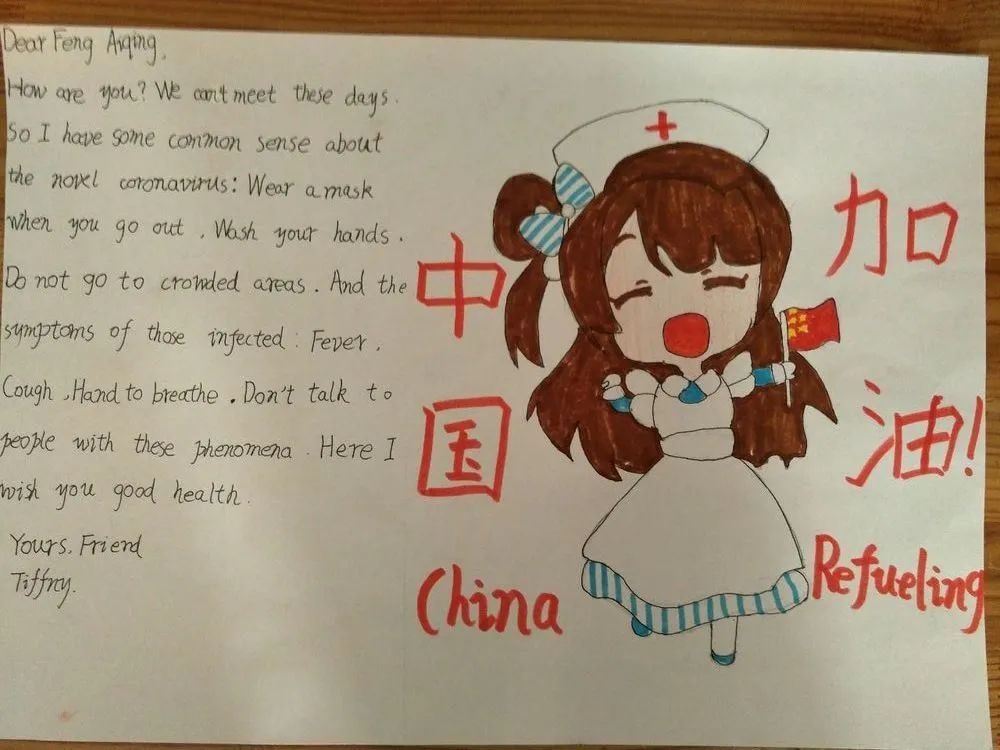 Dear Feng Aiqing,
How are you? We can't meet these days.
So I have some common sense about
the novel coronavirus: Wear a mask
when you go out. Wash your hands.
Do not go to crowded areas. And the
symptoms of those infected: Fever.
Cough, Hand to breathe. Don't talk to
people with these phenomena. Here I
wish you good health.
Yours. Friend
Tiffny.
中国
加油!
China
Refueling